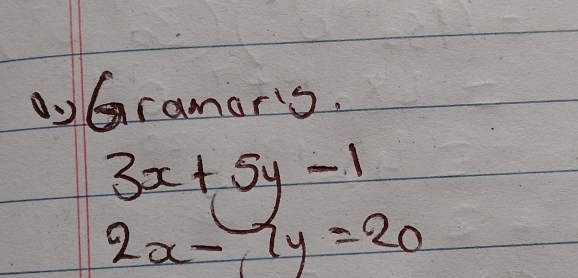 0.) Gramar's.
3x + 5y - 1
2x - 7y = 20